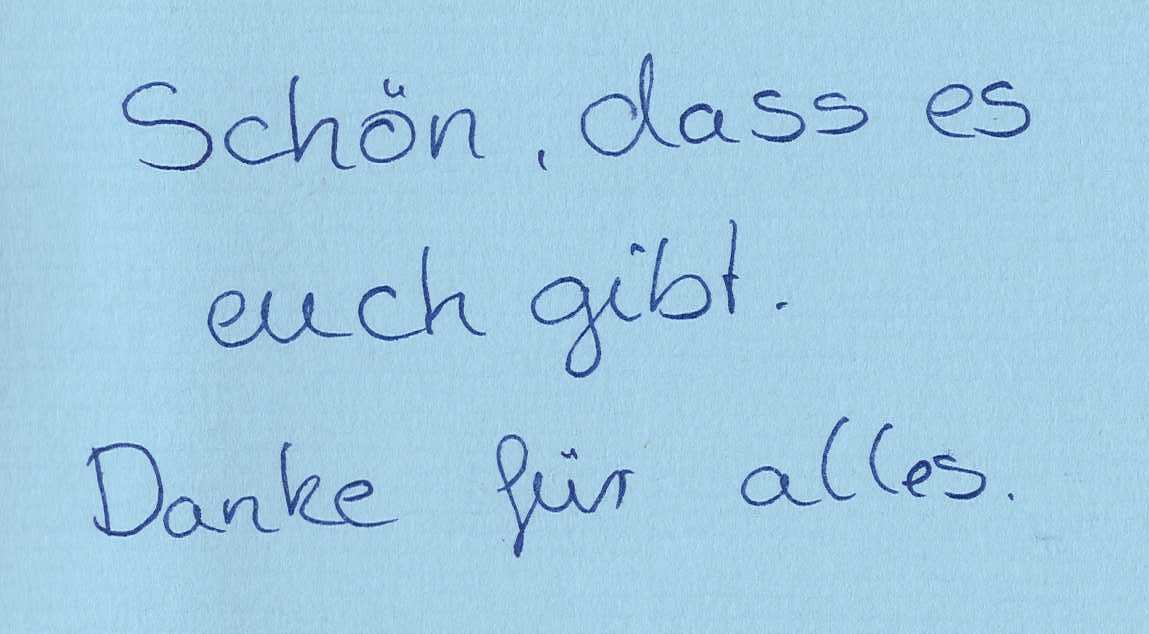 Schön, dass es
euch gibt.
Danke für alles.